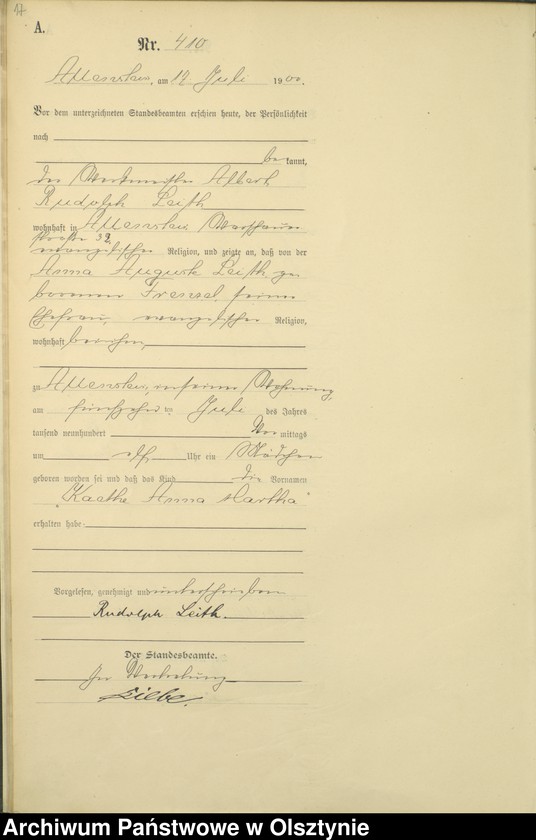 17
A.
Nr. 410
Allenstein, am 19 Juli 1900.
Vor dem unterzeichneten Standesbeamten erschien heute, der Persönlichkeit
nach
be kannt,
der Werkmeister Albert
Rudolph Leith
wohnhaft in Allenstein Warschauer
straße 32,
evangelischer Religion, und zeigte an, daß von der
Anna Auguste Leith, ge
borenen Frenzel, seiner
Ehefrau, evangelischer Religion,
wohnhaft bei ihm,
zu Allenstein, in seiner Wohnung,
am fünfzehnten Juli des Jahres
tausend neunhundert Vor mittags
um elf Uhr ein Mädchen
geboren worden sei und daß das Kind die Vornamen
"Kaethe Anna Martha"
erhalten habe.
Vorgelesen, genehmigt und unterschrieben
Rudolph Leith.
Der Standesbeamte.
In Vertretung
Archiwum Państwowe w Olsztynie